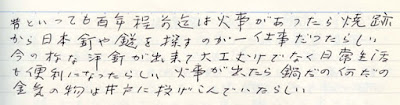 昔といっても百年程前迄は火事があったら焼跡
から日本釘や鎹を探すのが一仕事だったらしい
今の様な洋釘が出来て大工だけでなく日常生活
も便利になったらしい 火事が出たら鍋だの何だの
金気の物は井戸に投げこんでいたらしい